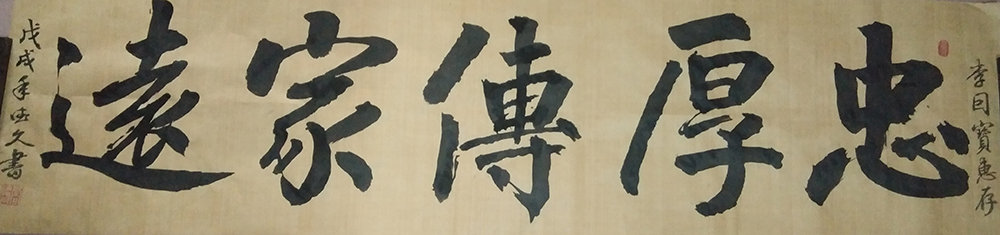 李同寶惠存
忠厚傳家遠
戊戌年 久書